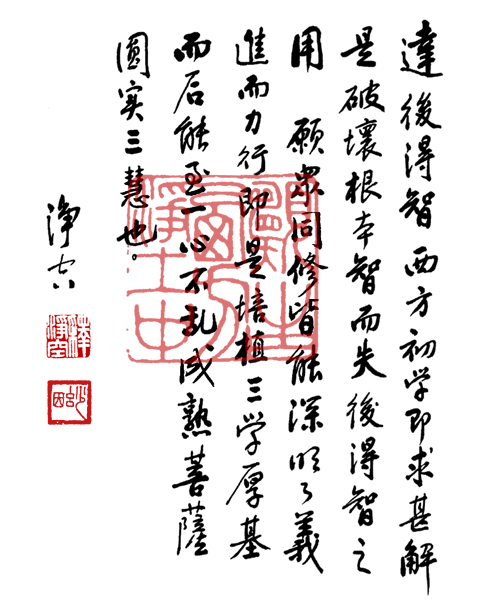 達後得智 西方初学即求甚解
是破壞根本智而失後得智之
用　願眾同修皆能深明了義
進而力行即是培植三学厚基
而后能至一心不乱成熟菩薩
圓实三慧也。
淨空
釋淨空
願生西方淨土中